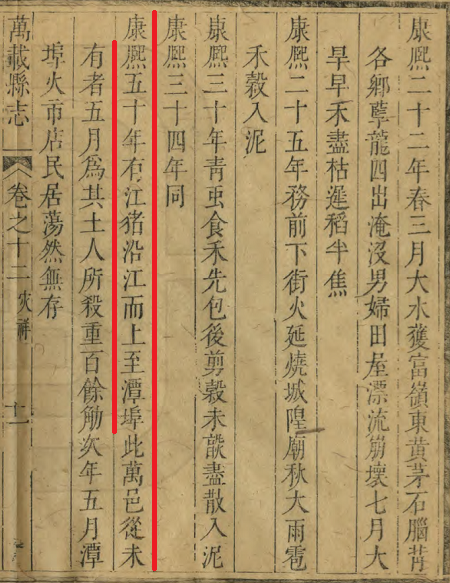 康熈二十二年春三月大水獲富嶺東黃茅石腦等
各鄉孽龍四出淹沒男婦田屋漂流崩壞七月大
旱早禾盡枯遲稻半焦
康熈二十五年務前下街火延燒城隍廟秋大雨雹
禾穀入泥
康熈三十年青虫食禾先包後剪穀未蓺盡散入泥
康熈三十四年同
康熈五十年有江猪沿江而上至潭埠此萬邑從未
有者五月爲其土人所殺重百餘觔次年五月潭
埠火市店民居蕩然無存
萬載縣志 卷之十二 灾祥 十一